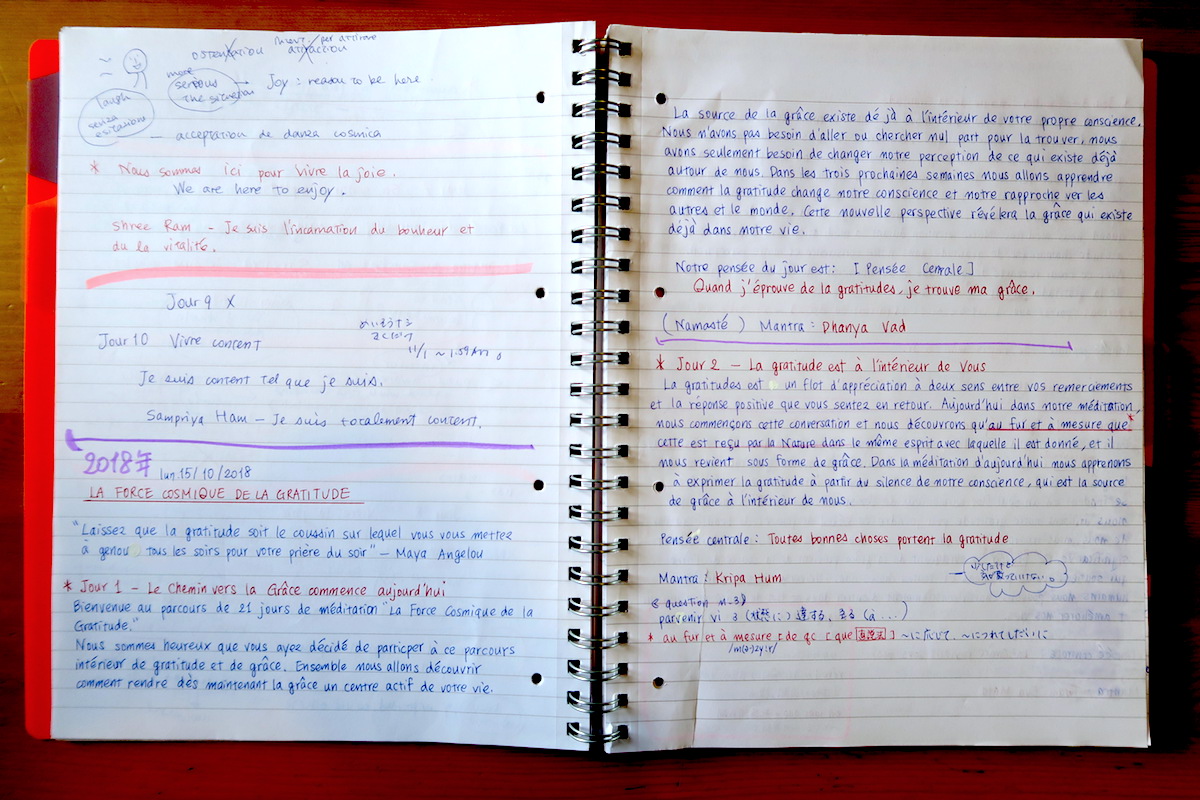 ostentation
attraction
laugh
senza
more
serious
the situation
Joy : reason to be here
— acceptation de danza cosmica
* Nous sommes ici pour vivre la joie.
We are here to enjoy.
Shree Ram - Je suis l'incarnation du bonheur et
du la vitalité.
Jour 9 X
Jour 10 Vivre content
11/1 ~ 1.59AM
Je suis content tel que je suis.
Sampriya Ham — Je suis totalement content.
2018年 lun.15/10/2018
LA FORCE COSMIQUE DE LA GRATITUDE
"Laissez que la gratitude soit le coussin sur lequel vous vous mettez
à genou tous les soirs pour votre prière du soir" — Maya Angelou
* Jour 1 - Le Chemin vers la Grâce commence aujourd'hui
Bienvenue au parcours de 21 jours de méditation "La Force Cosmique de la
Gratitude."
Nous sommes heureux que vous ayez décidé de particper à ce parcours
intérieur de gratitude et de grâce. Ensemble nous allons découvrir
comment rendre dès maintenant la grâce un centre actif de votre vie.
La source de la grâce existe dé jà à l'intérieur de votre propre conscience.
Nous n'avons pas besoin d'aller ou chercher nul part pour la trouver, nous
avons seulement besoin de changer notre perception de ce qui existe déjà
autour de nous. Dans les trois prochaines semaines nous allons apprendre
comment la gratitude change notre conscience et notre rapproche ver les
autres et le monde. Cette nouvelle perspective révélera la grâce qui existe
déjà dans notre vie.
Notre pensée du jour est: [Pensée Centrale]
Quand j'éprouve de la gratitudes, je trouve ma grâce.
(Namasté) Mantra: Dhanya Vad
* Jour 2 — La gratitude est à l'intérieur de Vous
La gratitudes est un flot d'appréciation à deux sens entre vos remerciements
et la réponse positive que vous sentez en retour. Aujourd'hui dans notre méditation,
nous commençons cette conversation et nous découvrons qu'au fur et à mesure que*
cette est reçu par la Nature dans le même esprit avec laquelle il est donné, et il
nous revient sous forme de grâce. Dans la méditation d'aujourd'hui nous apprenons
à exprimer la gratitude à partir du silence de notre conscience, qui est la source
de grâce à l'intérieur de nous.
Pensée centrale : Toutes bonnes choses portent la gratitude
Mantra : Kripa Hum
question n.38
parvenir vi 3 (状態に) 達する, 至る (à ...)
* au fur et à mesure [de qc [que 直説法] ~に応じて, ~につれてしだいに